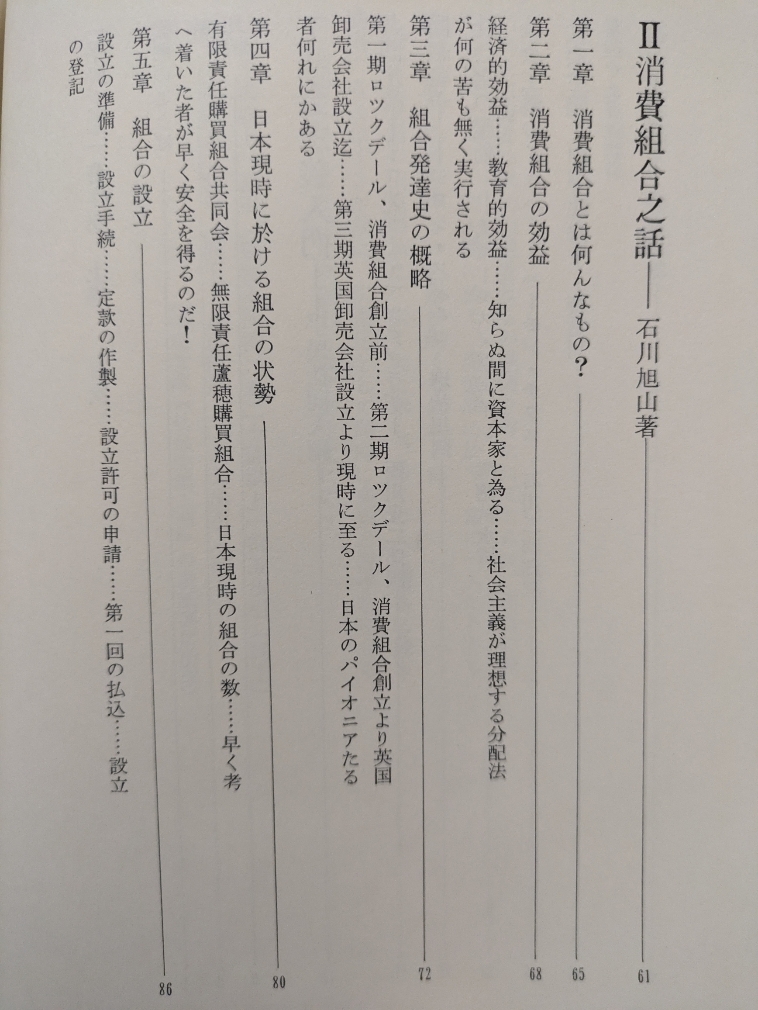 II 消費組合之話——石川旭山著 61
第一章 消費組合とは何んなもの? 65
第二章 消費組合の効益 68
経済的効益……教育的効益……知らぬ間に資本家と為る……社会主義が理想する分配法
が何の苦も無く実行される
第三章 組合発達史の概略 72
第一期ロツクデール、消費組合創立前……第二期ロツクデール、消費組合創立より英国
卸売会社設立迄……第三期英国卸売会社設立より現時に至る……日本のパイオニアたる
者何れにかある
第四章 日本現時に於ける組合の状勢 80
有限責任購買組合共同会……無限責任蘆穂購買組合……日本現時の組合の数……早く考
へ着いた者が早く安全を得るのだ!
第五章 組合の設立 86
設立の準備……設立手続……定款の作製……設立許可の申請……第一回の払込……設立
の登記